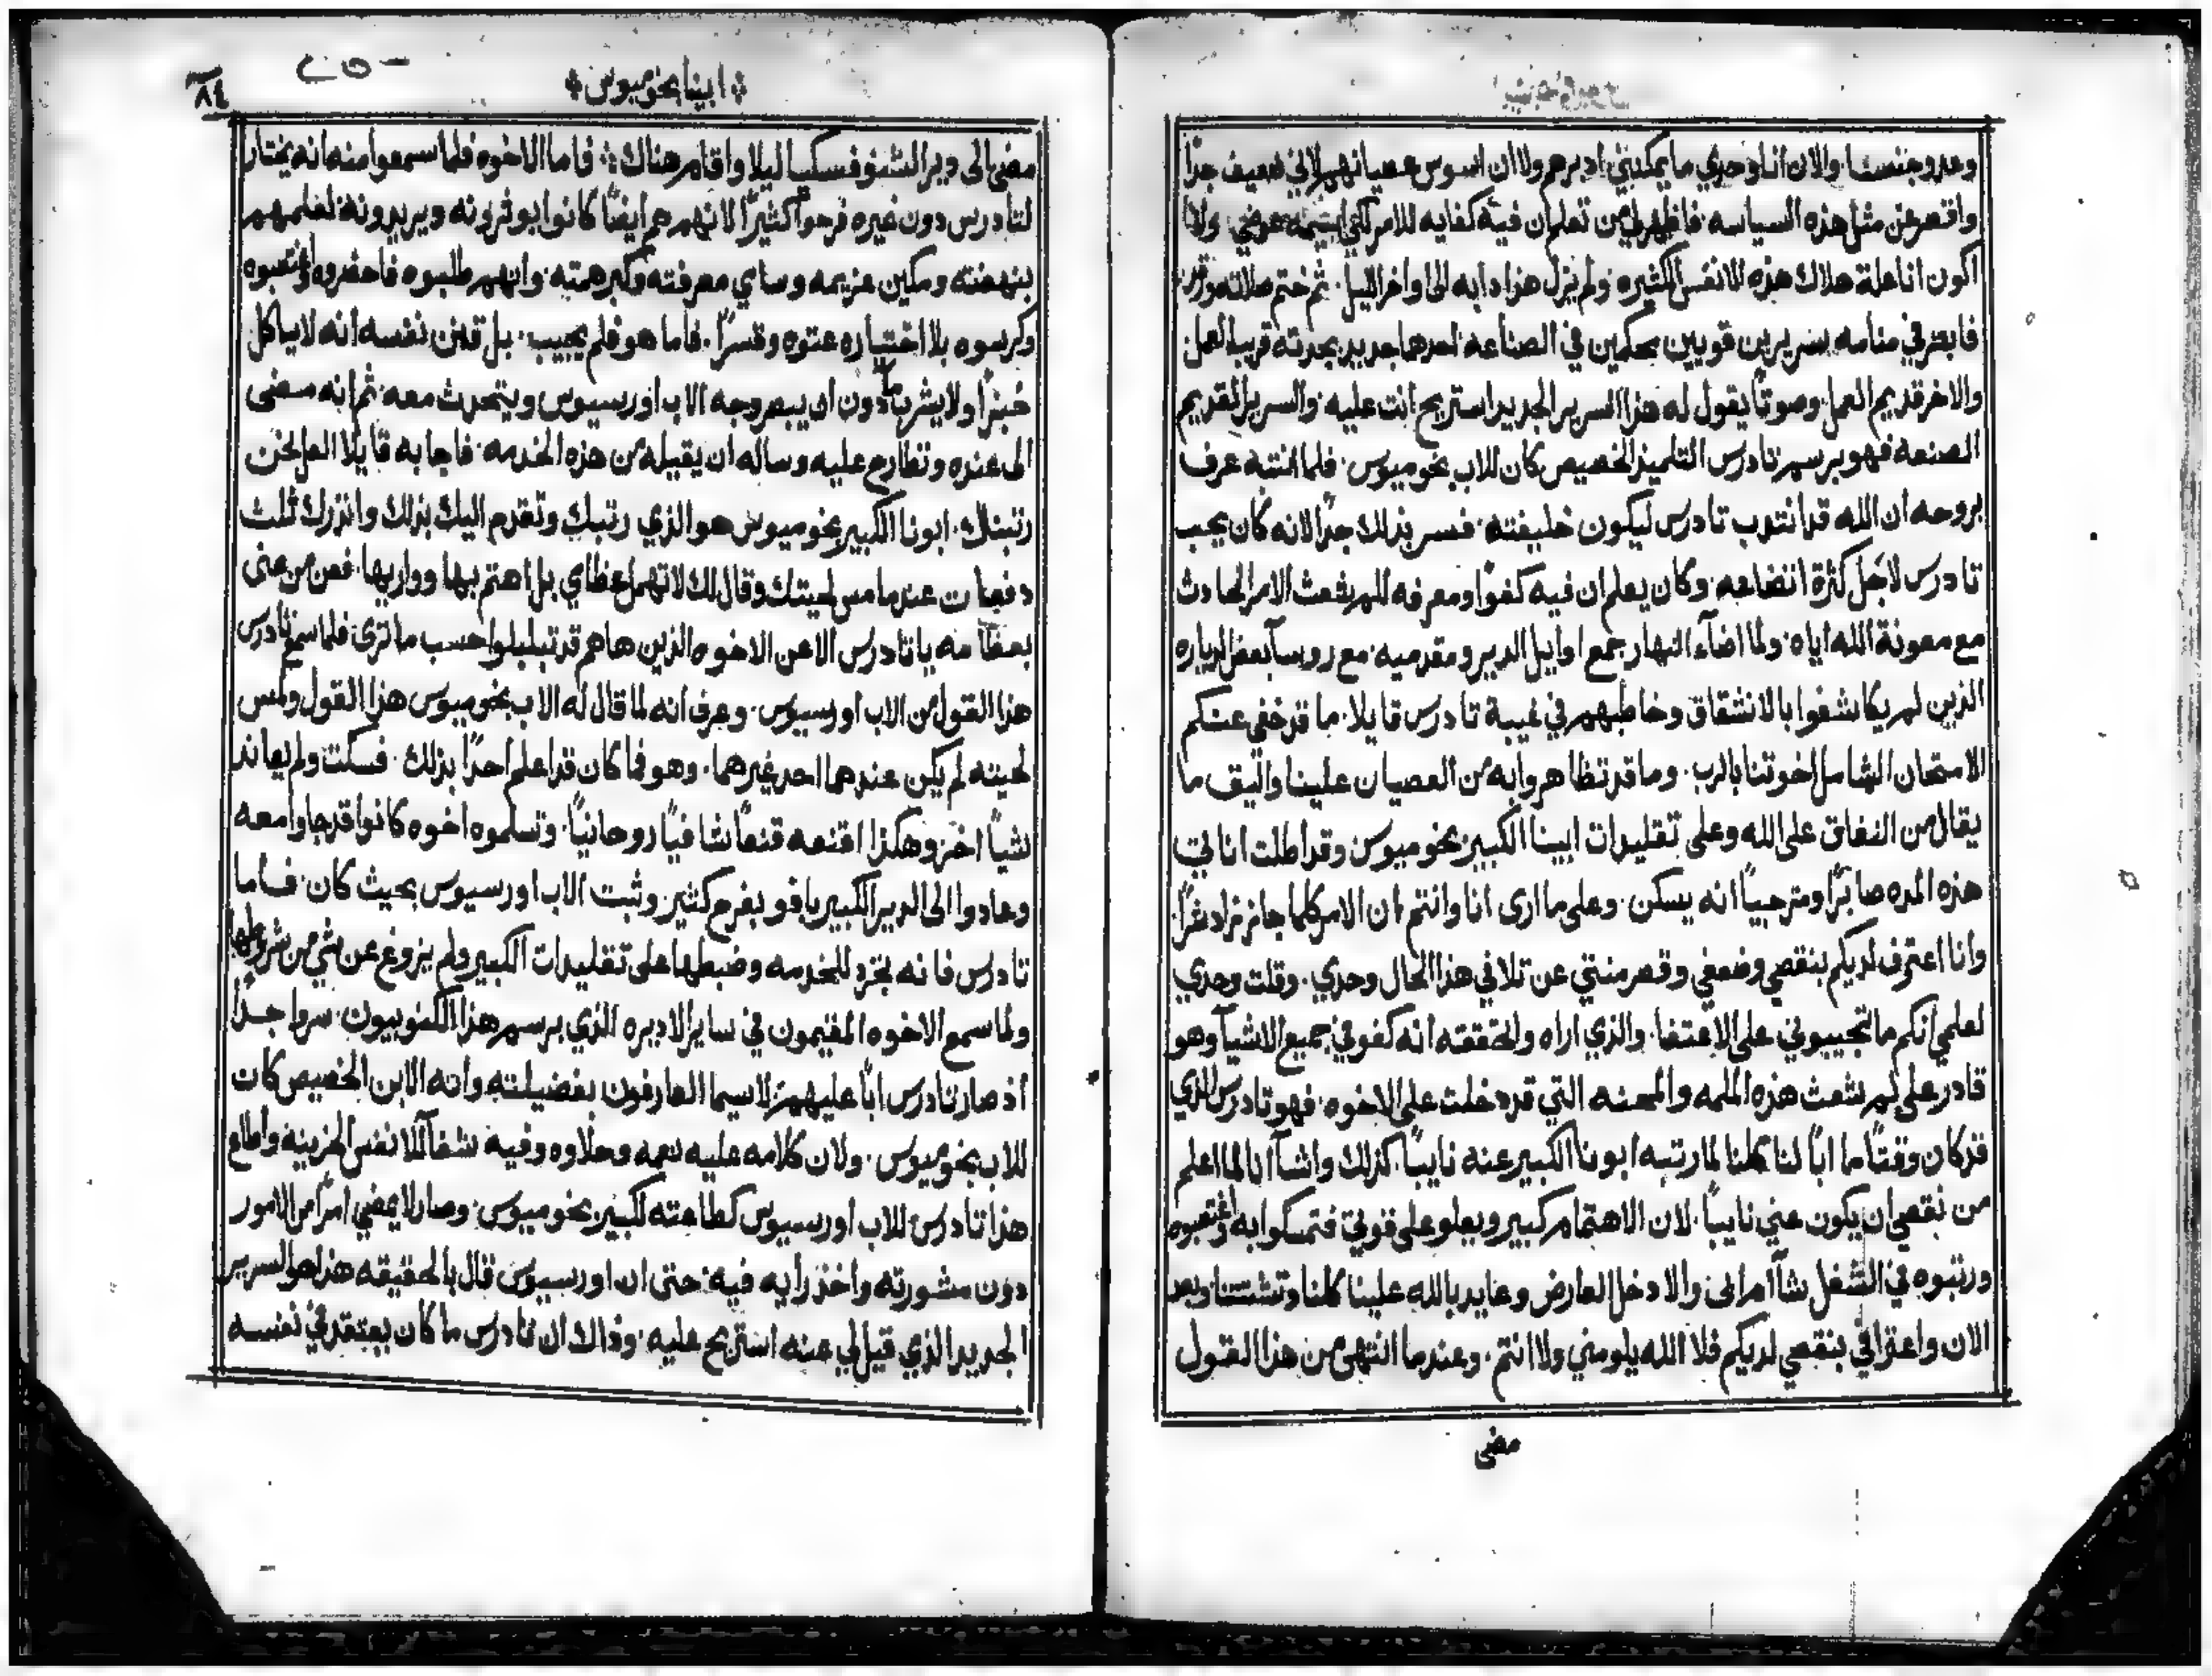 وعدو جنسنا. والان انا وحدي ما يمكنني ادبرهم ولا ان اسوس عصيانهم لاني ضعيف جدًا
واقصر عن مثل هذه السياسه. فاظهر لي من تعلم ان فيه كفايه للامر لكي عوضي ولا
اكون انا علة هلاك هذه الانفس الكثيره. ولم يزل هذا دابه الى اواخر الليل. ثم ختم صلاته
فابصر في منامه سريرين قويين محكمين في الصناعه احدهما جديد بجدته قريب العمل
والاخر قديم العمل. وصوتًا يقول له هذا السرير الجديد استريح انت عليه. والسرير القديم
الصنعه فهو برسم تادرس التلميذ الخصيص كان للاب بخوميوس. فلما انتبه عرف
بروحه ان الله قد انتدب تادرس ليكون خليفته. فسر بذلك جدًا لانه كان يحب
تادرس لاجل كثرة اتضاعه. وكان يعلم ان فيه كفوًا ومعرفه للم شعث الامر الحادث
مع معونة الله اياه. ولما اضآء النهار جمع اوايل الدير ومقدميه. مع روسآ بعض الدياره
الذين لم يكا شفوا بالانشقاق وخاطبهم في غيبة تادرس قايلا. ما قد خفى عنكم
الامتحان الشامل اخوتنا بالرب. وما قد تظاهروا به من العصيان علينا واليق ما
يقال من النفاق على الله وعلى تقليدات ابينا الكبير بخوميوس وقد اطلت اناتي
هذه المده صابرًا ومترجيًا انه يسكن. وعلى ما ارى انا وانتم ان الامر كلما جاز زاد شرًا
وانا اعترف لديكم بنقصي وضعفي وقصر منتي عن تلافي هذا الحال وحدي. وقلت وحدي
لعلمي انكم ما تجيبوني على الاعتفا. والذي اراه والحققته انه كفو في جميع الاشيآ وهو
قادر على لم شعث هذه الملمه والمحنه التي قد دخلت على الاخوه. فهو تادرس الذي
قد كان وقتًا ما ابًا لنا كلنا لما رتبه ابونا الكبير عنه نايبًا. كذلك واشآ انا لما اعلم
من نقصي ان يكون عني نايبًا. لان الاهتمام كبير ويعلو على قوتي فتمسكوا به واغتصبوه
ورتبوه في الشغل شآ ام ابى والا دخل العارض وعايد بالله علينا كلنا وتشتتنا وبعد
الان واعترافي بنقصي لديكم فلا الله يلومني ولا انتم. وعندما انتهى من هذا القول
مضى
٨٤
* ابينا بخوميوس *
مضى الى دير الشنوفسكيا ليلا واقام هناك. فاما الاخوه فلما سمعوا منه انه يختار
لتادرس دون غيره فرحوا كثيرًا لانهم هم ايضًا كانوا يوثرونه ويريدونه لعلمهم
بنهضته ومكين عزيمه وسامي معرفته وكبر همته. وانهم طلبوه فاحضروه واغتصبوه
وكرسوه بلا اختياره عنوه وقسرًا. فاما هو فلم يجيب. بل قنن نفسه انه لا ياكل
خبزًا ولا يشرب ماءً دون ان يبصر وجه الاب اورسيوس ويتحدث معه. ثم انه مضى
الى عنده وتطارح عليه وساله ان يقيله من هذه الخدمه. فاجابه قايلا العل نحن
رتبناك. ابونا الكبير بخوميوس هو الذي رتبك وتقدم اليك بذلك وانذرك ثلث
دفعات عندما مس لحيتك وقال لك لا تهمل عظامي بل اهتم بها وواريها. فمن من عنى
بعظامه يا تادرس الا عن الاخوه الذين هاهم قد تبلبلوا حسب ما ترى. فلما سمع تادرس
هذا القول من الاب اورسيوس. وعرف انه لما قال له الاب بخوميوس هذا القول ولمس
لحيته لم يكن عندهما احد غيرهما. وهو فما كان قد اعلم احدًا بذلك. فسكت ولم يعاند
شيًا اخر وهكذا اقتنعه قنعًا شافيًا روحانيًا. وتسلموه اخوه كانوا قد جاوا معه
وعادوا الى الدير الكبير بافو بفرح كثير. وثبت الاب اورسيوس بحيث كان. فاما
تادرس فانه تجرد للخدمه وضبطها على تقليدات الكبير ولم يزوغ عن شي من شروطها
ولما سمع الاخوه المقيمون في ساير الاديره الذي برسم هذا الكنوبيون. سروا جدًا
اذ صار تادرس ابًا عليهم. لاسيما العارفون بفضيلته وانه الابن الخصيص كان
للاب بخوميوس. ولان كلامه عليه نعمه وحلاوه وفيه شفآ للانفس الحزينه واطاع
هذا تادرس للاب اورسيوس كطاعته للكبير بخوميوس. وصار لا يمضي امرًا من الامور
دون مشورته واخذ رايه فيه. حتى ان اورسيوس قال بالحقيقه هذا هو السرير
الجديد الذي قيل لي عنه استريح عليه. وذاك ان تادرس ما كان يعتقد في نفسه